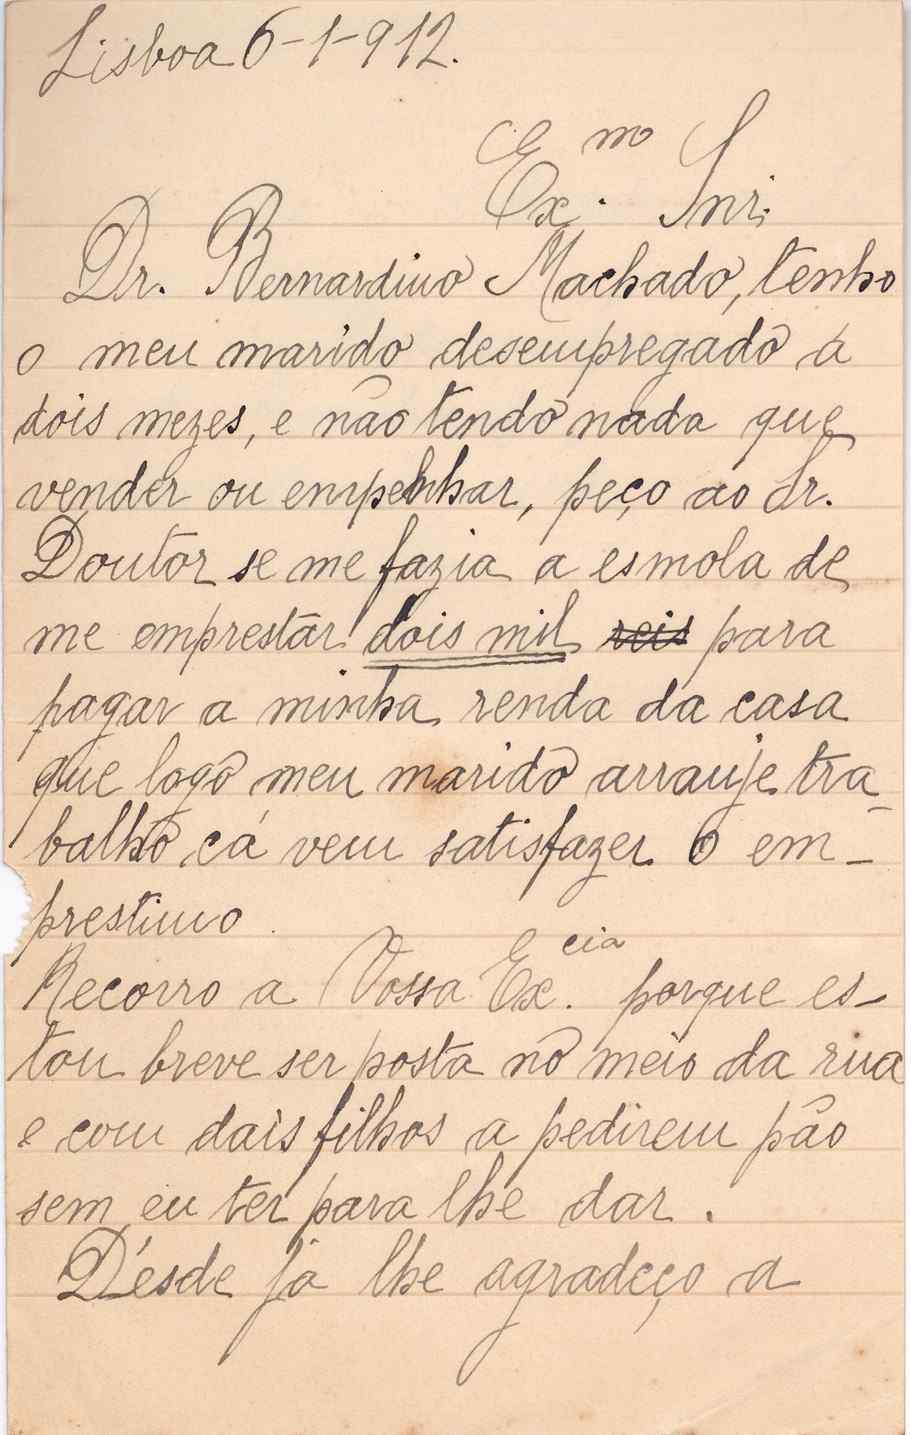 Lisboa 6-1-912.
Ex.mo Snr.
Dr. Bernardino Machado, tenho
o meu marido desempregado á
dois mezes, e não tendo nada que
vender ou empenhar, peço ao Sr.
Doutor se me fazia a esmola de
me emprestar dois mil reis para
pagar a minha renda da casa
que logo meu marido arranje tra-
balho cá vem satisfazer o em-
prestimo
Recorro a Vossa Ex.cia porque es-
tou breve ser posta no meio da rua
e com dais filhos a pedirem pão
sem eu ter para lhe dar.
Désde já lhe agradeço a